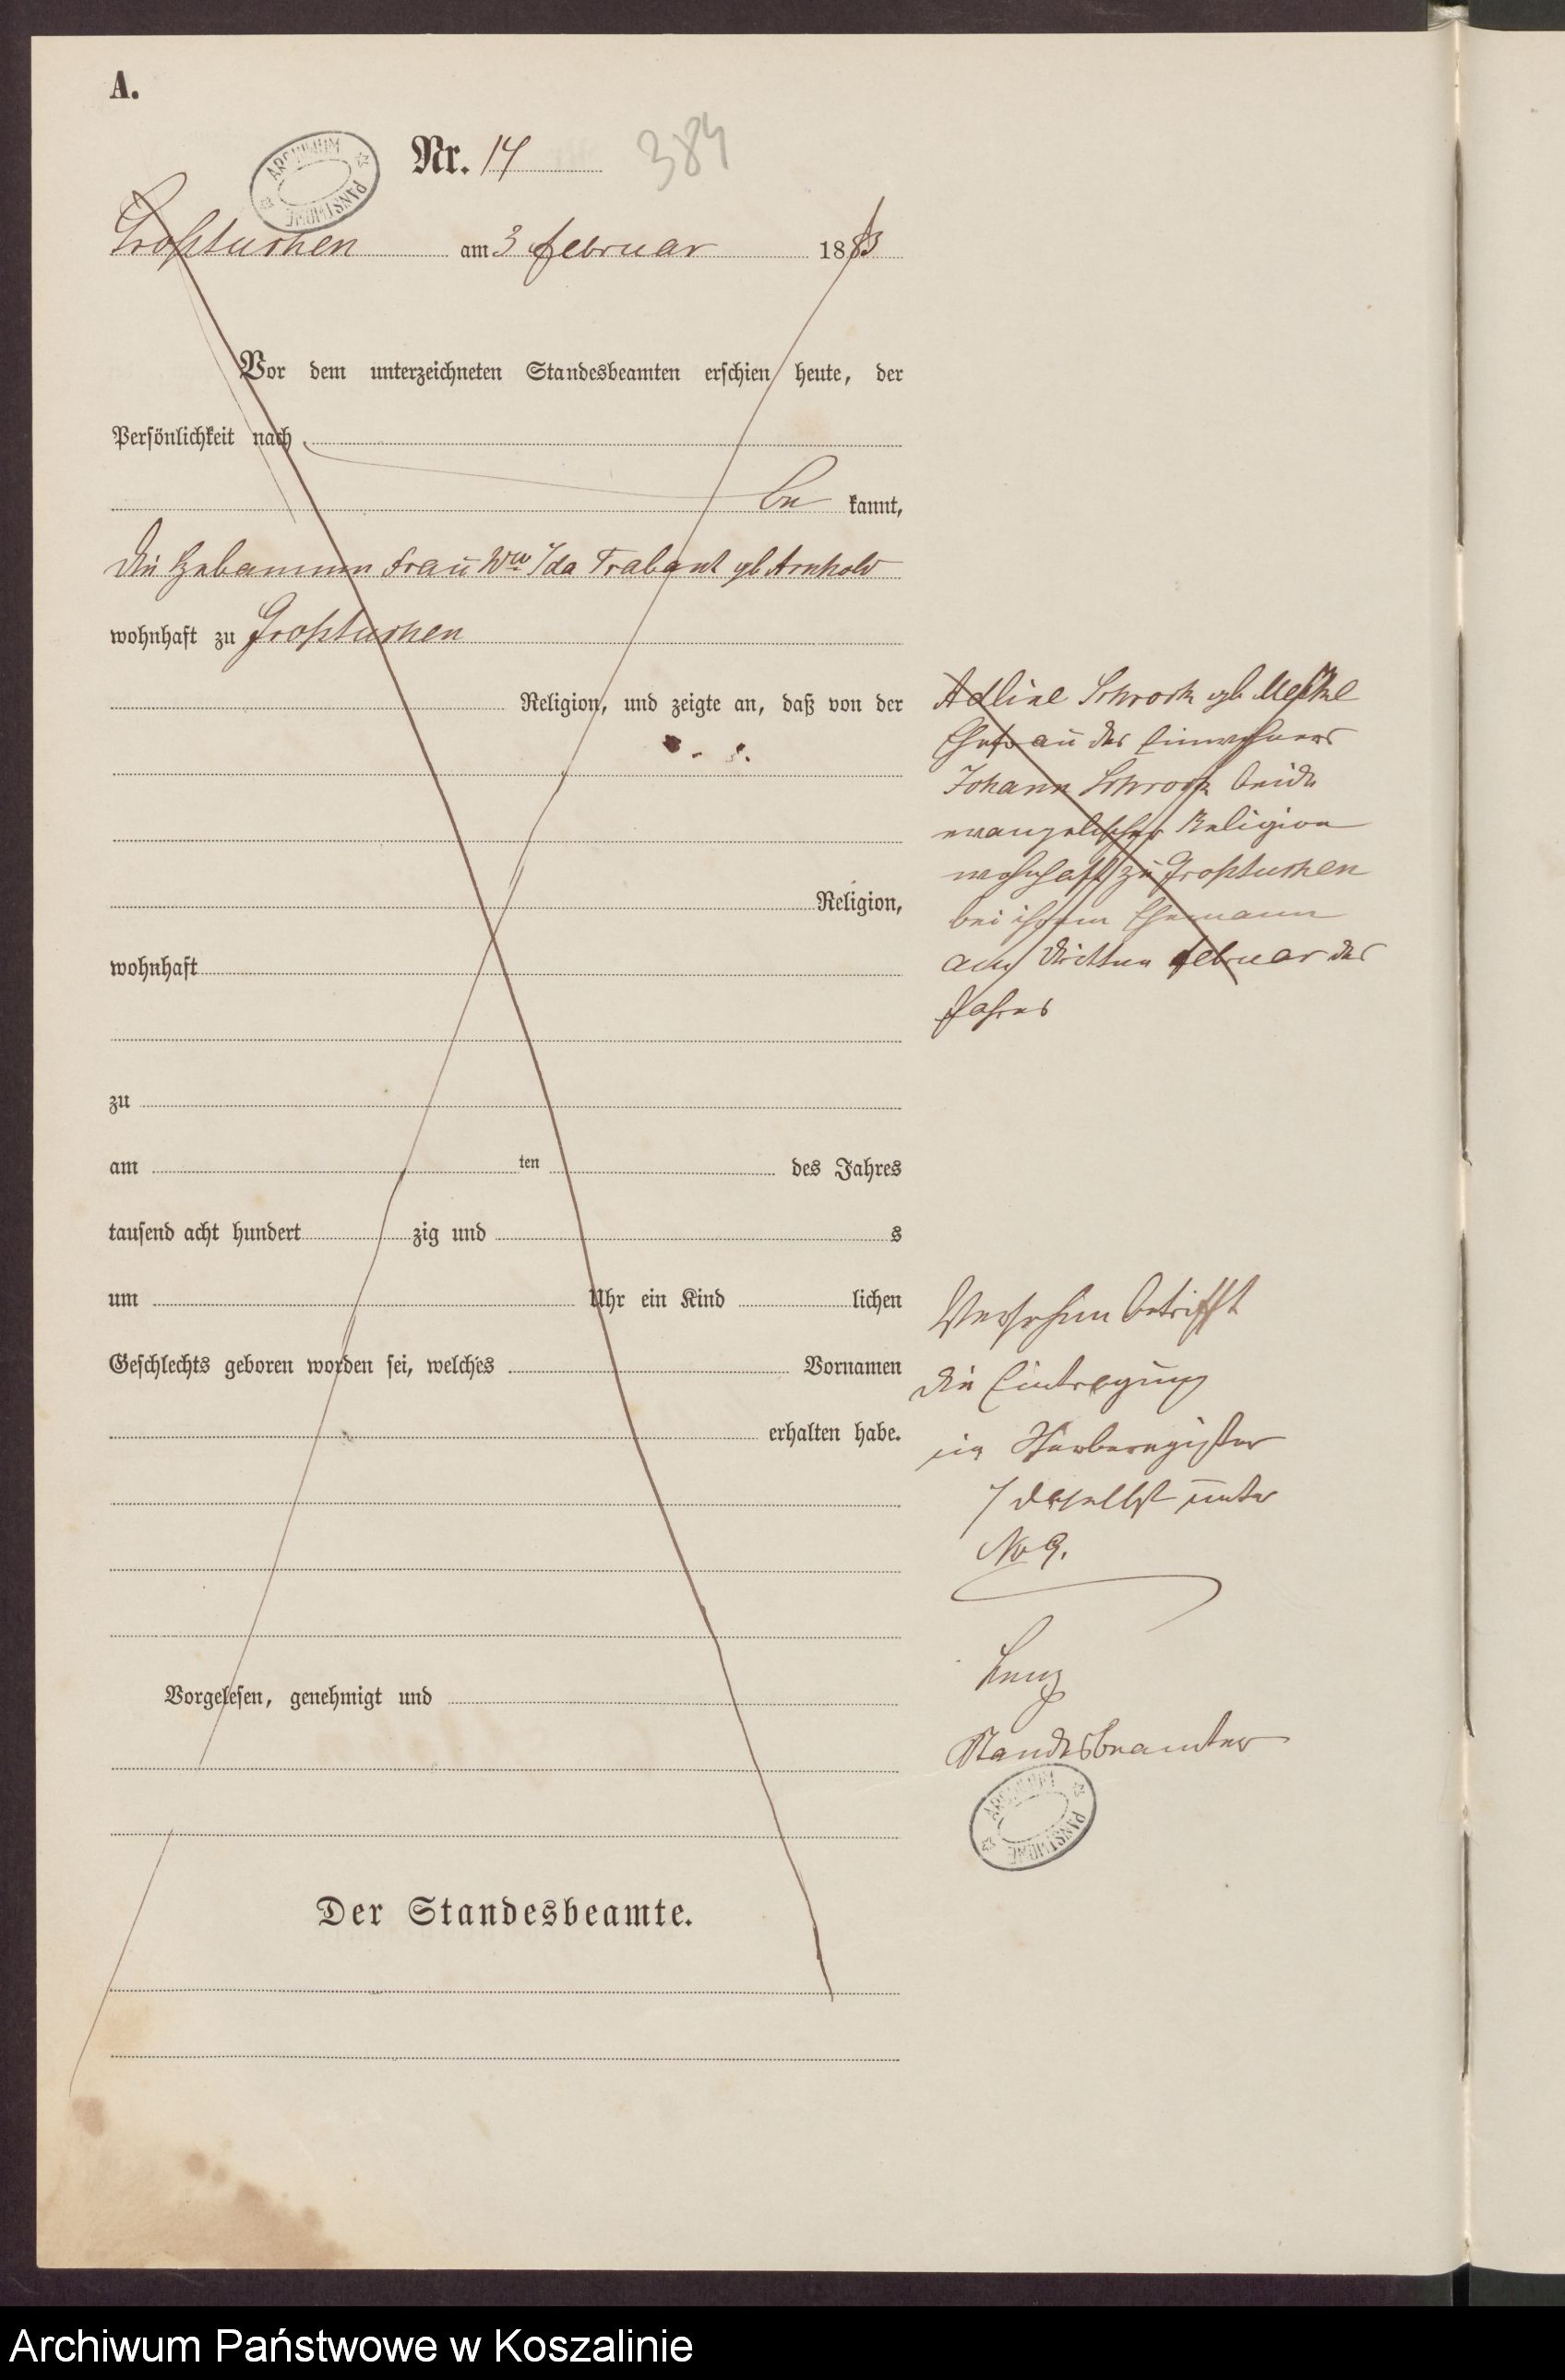 A.
Nr. 14 384
ARCHIWUM PAŃSTWOWE
Großtuchen am 3 Februar 1883
Vor dem unterzeichneten Standesbeamten erschien heute, der
Persönlichkeit nach
be kannt,
die Hebamme Frau Wwe Ida Trabant gb Arnhold
wohnhaft zu Großtuchen
Religion, und zeigte an, daß von der
Religion,
wohnhaft
zu
am ten des Jahres
tausend acht hundert zig und s
um Uhr ein Kind lichen
Geschlechts geboren worden sei, welches Vornamen
erhalten habe.
Vorgelesen, genehmigt und
Der Standesbeamte.
Adline Schrock gb
Ehefrau des Einwohners
Johann Schrock beide
evangelischer Religion
wohnhaft zu Großtuchen
bei ihrem Ehemann
am dritten Februar des
Jahres
Versehen betrifft
die Eintragung
im Sterberegister
daselbst unter
No 9.
Lenz
Standesbeamter
ARCHIWUM PAŃSTWOWE
Archiwum Państwowe w Koszalinie